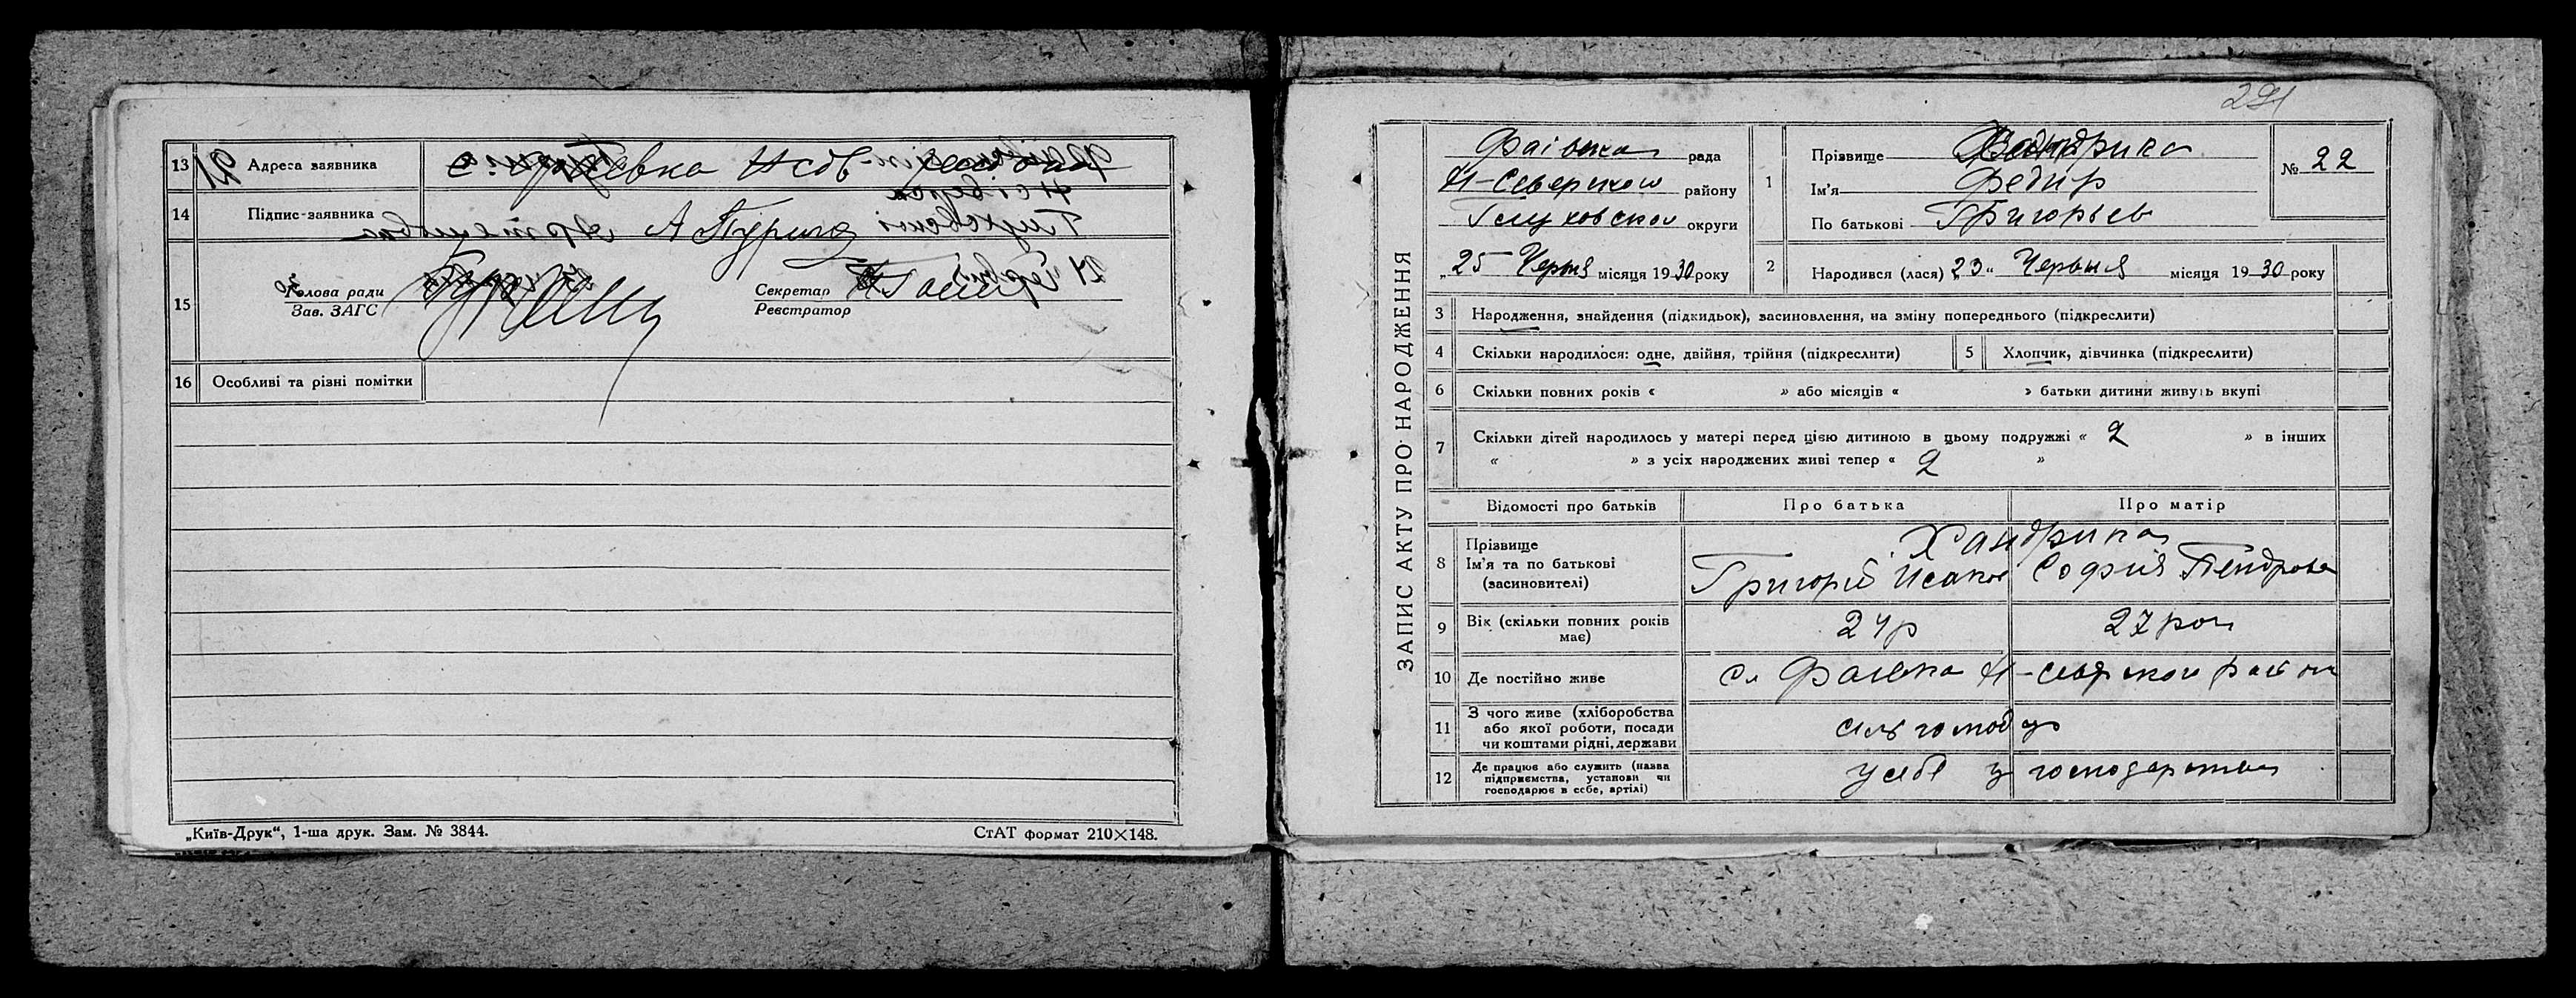 13 Адреса заявника
14 Підпис заявника А Пурига
15 Голова ради
Зав. ЗАГС
Секретар
Реєстратор
16 Особливі та різні помітки
„Київ-Друк“, 1-ша друк. Зам. № 3844.
СтАТ формат 210×148.
291
ЗАПИС АКТУ ПРО НАРОДЖЕННЯ
Фаівка рада
Н-Северской району
Глуховскои округи
„25 Червня місяця 1930 року
1 Прізвище
Ім'я Федір
По батькові Григорьев
№ 22
2 Народився (лася) 23 „ Червня місяця 1930 року
3 Народження, знайдення (підкидьок), засиновлення, на зміну попереднього (підкреслити)
4 Скільки народилося: одне, двійня, трійня (підкреслити)
5 Хлопчик, дівчинка (підкреслити)
6 Скільки повних років « » або місяців « » батьки дитини живуть вкупі
7 Скільки дітей народилось у матері перед цією дитиною в цьому подружжі « 2 » в інших
« » з усіх народжених живі тепер « 2 »
Відомості про батьків
Про батька
Про матір
8 Прізвище
Ім'я та по батькові
(засиновителі)
Хандрика
Григорій Исаков
София
9 Вік (скільки повних років
має)
24р
27 рок
10 Де постійно живе
Сл Фаївка Н-Северской район
11 З чого живе (хліборобства
або якої роботи, посади
чи коштами рідні, держави
12 Де працює або служить (назва
підприємства, установи чи
господарює в себе, артілі)
у себе у господарстви